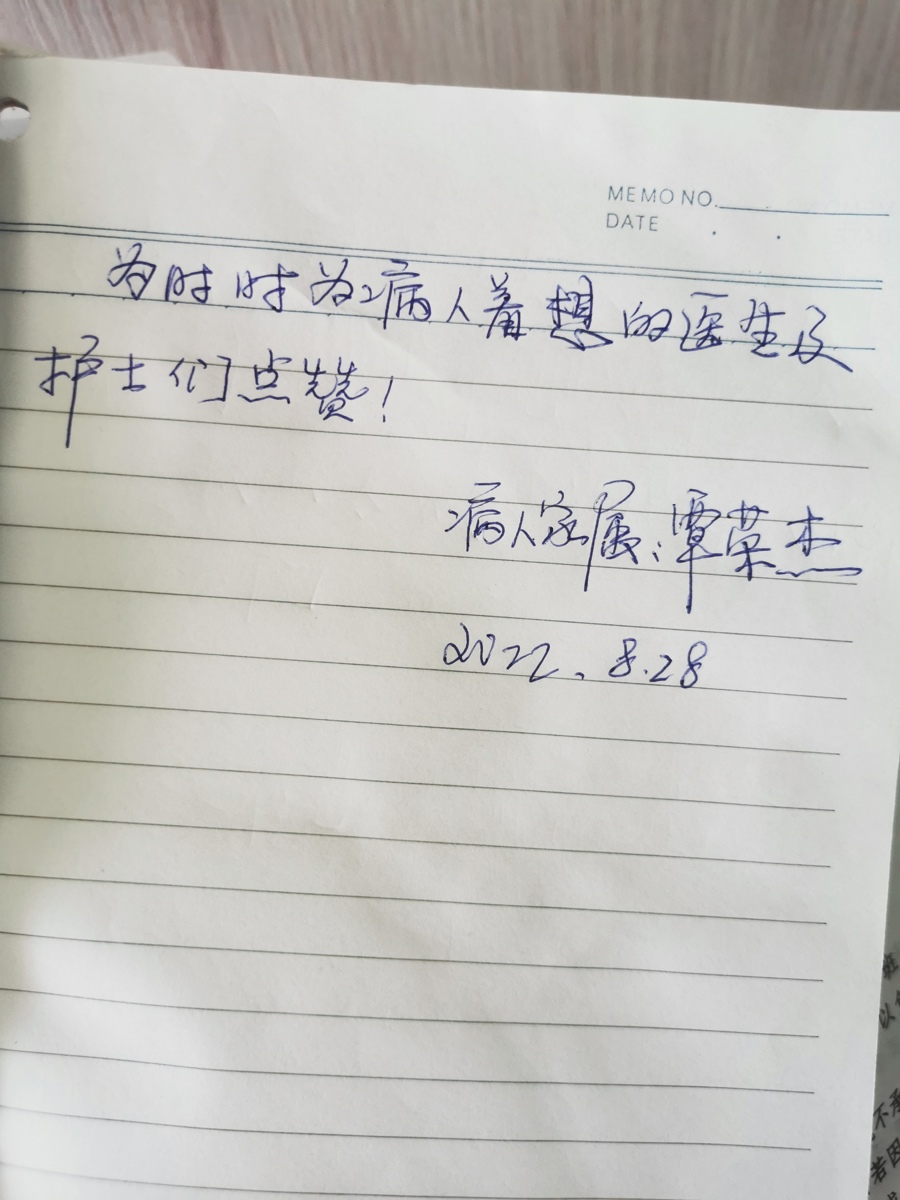 MEMO NO.
DATE . .
为时时为病人着想的医生及
护士们点赞!
病人家属:覃荣杰
2022.8.28
班
以
不承
若因